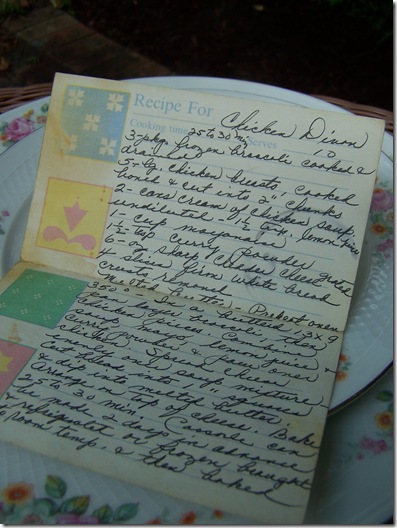 Recipe For Chicken Divan
Cooking time 25 to 30 min Serves 10
3-pkg. frozen broccoli cooked &
drained
5-lg. chicken breasts, cooked
boned & cut into 2" chunks
2-cans cream of chicken soup,
undiluted - 1/2 lemon juice
1-cup mayonnaise
1 1/2-tsp curry powder
6-oz sharp cheddar cheese grated
4 slices firm white bread
crusts removed
melted butter - Preheat oven
350° - In a buttered 13 x 9
layer broccoli, then
chicken pieces. Combine
soup, mayo, lemon juice -
curry powder & pour over
chicken. Spread cheese
evenly over soup mixture
Cut bread into 1" squares
& dip into melted butter,
arrange on top of cheese. Bake
25 to 30 min. (Casserole can
be made 2 days in advance
refrigerated or frozen, brought
to room temp. & then baked